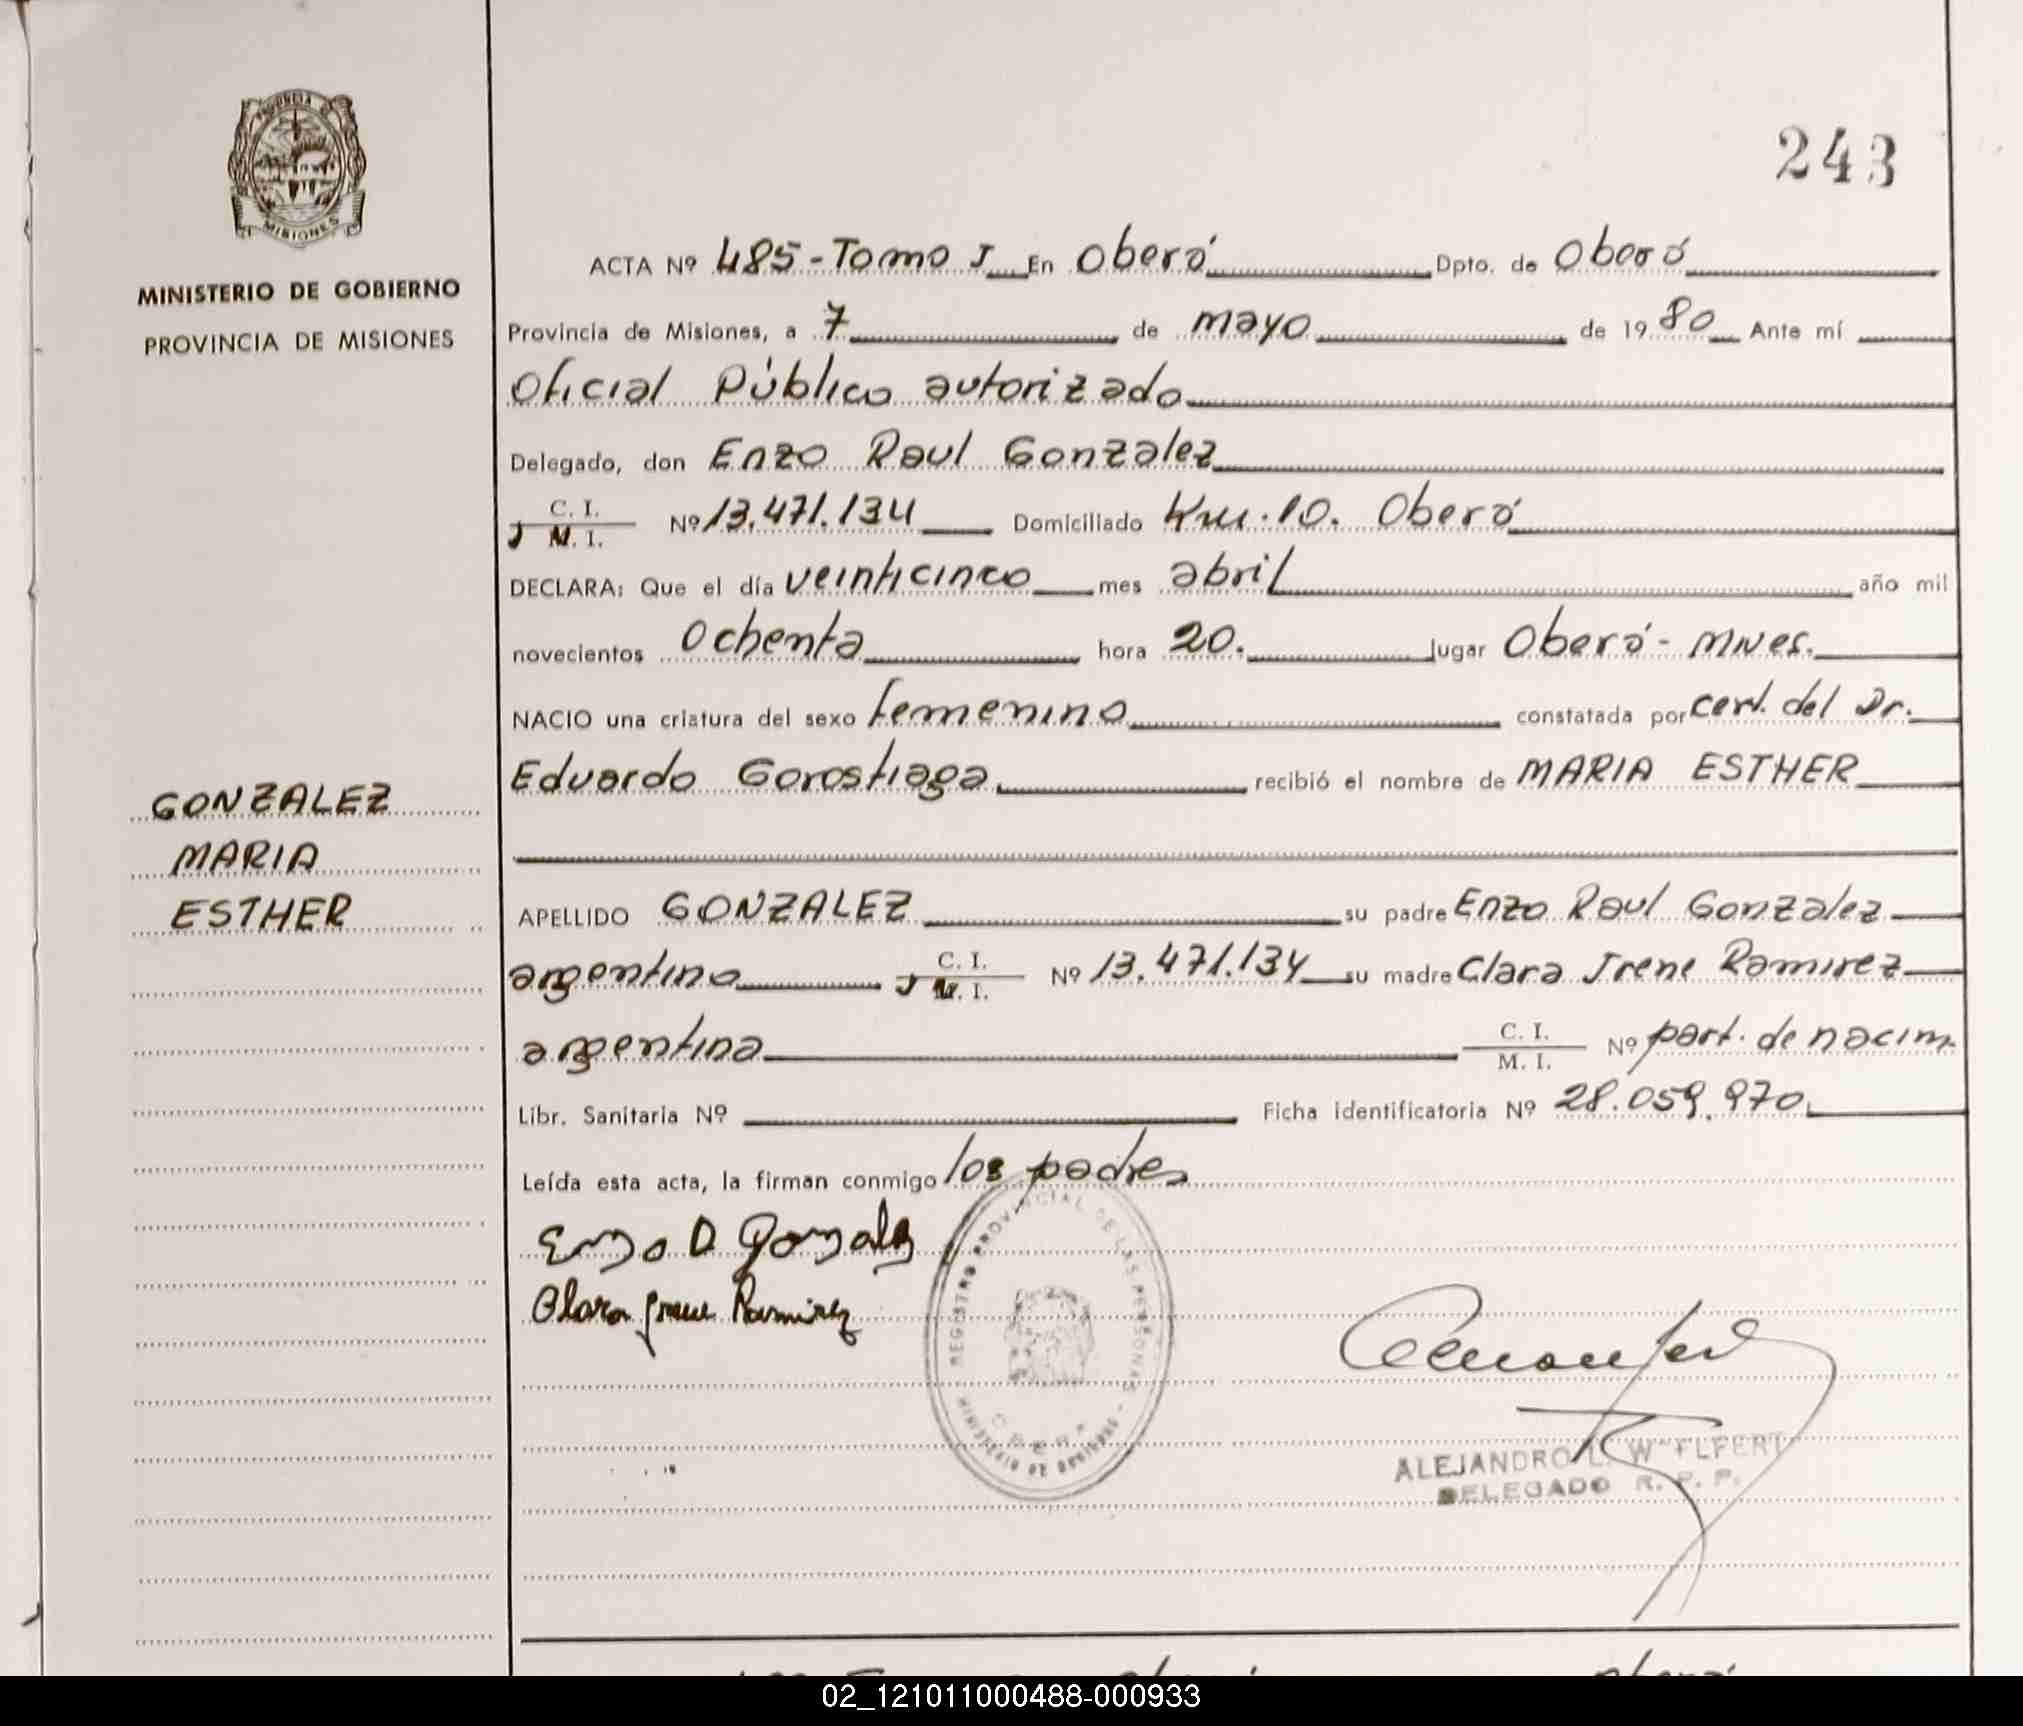 PROVINCIA DE
MISIONES
MINISTERIO DE GOBIERNO
PROVINCIA DE MISIONES
243
ACTA Nº 485-Tomo I En Oberá Dpto. de Oberá
Provincia de Misiones, a 7 de mayo de 1980 Ante mí
Oficial Público autorizado
Delegado, don Enzo Raul Gonzalez
C. I.
M. I. Nº 13.471.134 Domiciliado Km. 10. Oberá
DECLARA: Que el día veinticinco mes abril año mil
novecientos Ochenta hora 20. lugar Oberá - Mnes.
NACIO una criatura del sexo femenino constatada por cert. del Dr.
Eduardo Gorostiaga recibió el nombre de MARIA ESTHER
GONZALEZ
MARIA
ESTHER
APELLIDO GONZALEZ su padre Enzo Raul Gonzalez
argentino C. I. M. I. Nº 13.471.134 su madre Clara Irene Ramirez
argentina C. I. M. I. Nº part. de nacim.
Libr. Sanitaria Nº Ficha identificatoria Nº 28.059.970
Leída esta acta, la firman conmigo los padres
Enzo R Gonzalez
Clara Irene Ramirez
REGISTRO PROVINCIAL DE LAS PERSONAS
MINISTERIO DE GOBIERNO
ALEJANDRO L.
DELEGADO R. P. P.
02_121011000488-000933